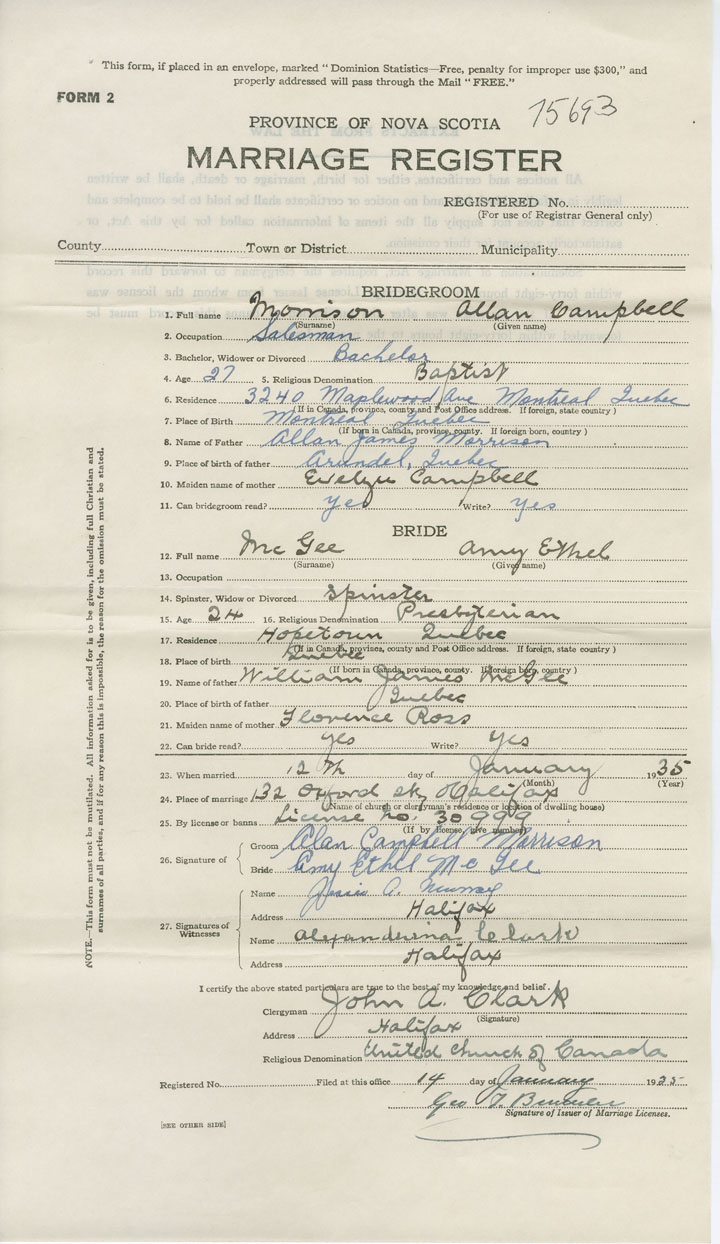 This form, if placed in an envelope, marked "Dominion Statistics—Free, penalty for improper use $300," and
properly addressed will pass through the Mail "FREE."
FORM 2
15693
PROVINCE OF NOVA SCOTIA
MARRIAGE REGISTER
REGISTERED No.
(For use of Registrar General only)
County Town or District Municipality
BRIDEGROOM
1. Full name Morrison Allan Campbell
(Surname) (Given name)
2. Occupation Salesman
3. Bachelor, Widower or Divorced Bachelor
4. Age 27 5. Religious Denomination Baptist
6. Residence 3240 Maplewood Ave Montreal Quebec
(If in Canada, province, county and Post Office address. If foreign, state country)
7. Place of Birth Montreal Quebec
(If born in Canada, province, county. If foreign born, country)
8. Name of Father Allan James Morrison
9. Place of birth of father Arundel, Quebec
10. Maiden name of mother Evelyn Campbell
11. Can bridegroom read? Yes Write? Yes
BRIDE
12. Full name McGee Amy Ethel
(Surname) (Given name)
13. Occupation
14. Spinster, Widow or Divorced Spinster
15. Age 24 16. Religious Denomination Presbyterian
17. Residence Hopetown Quebec
(If in Canada, province, county and Post Office address. If foreign, state country)
18. Place of birth Quebec
(If born in Canada, province, county. If foreign born, country)
19. Name of father William James McGee
20. Place of birth of father Quebec
21. Maiden name of mother Florence Ross
22. Can bride read? Yes Write? Yes
23. When married 12th day of January 1935
(Month) (Year)
24. Place of marriage 132 Oxford St, Halifax
(Name of church or clergyman's residence or location of dwelling house)
25. By license or banns License no. 30999
(If by license, give number)
26. Signature of
Groom Allan Campbell Morrison
Bride Amy Ethel McGee
27. Signatures of Witnesses
Name Jessie A. Murray
Address Halifax
Name Alexanderina Clark
Address Halifax
I certify the above stated particulars are true to the best of my knowledge and belief.
Clergyman John A. Clark
(Signature)
Address Halifax
Religious Denomination United Church of Canada
Registered No. Filed at this office 14 day of January 1935
Geo T.
Signature of Issuer of Marriage Licenses.
[SEE OTHER SIDE]
NOTE.—This form must not be mutilated. All information asked for is to be given, including full Christian and
surnames of all parties, and if for any reason this is impossible, the reason for the omission must be stated.